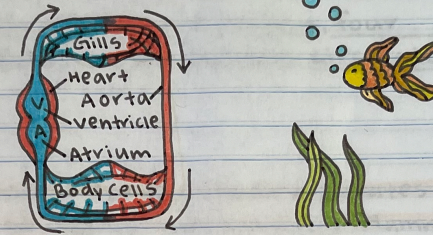 Gills
Heart
Aorta
V
ventricle
A
Atrium
Body cells